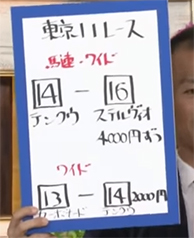 東京11レース
馬連・ワイド
14 - 16
テンクウ ステルヴィオ
4000円ずつ
ワイド
13 - 14 2000円
テンクウ